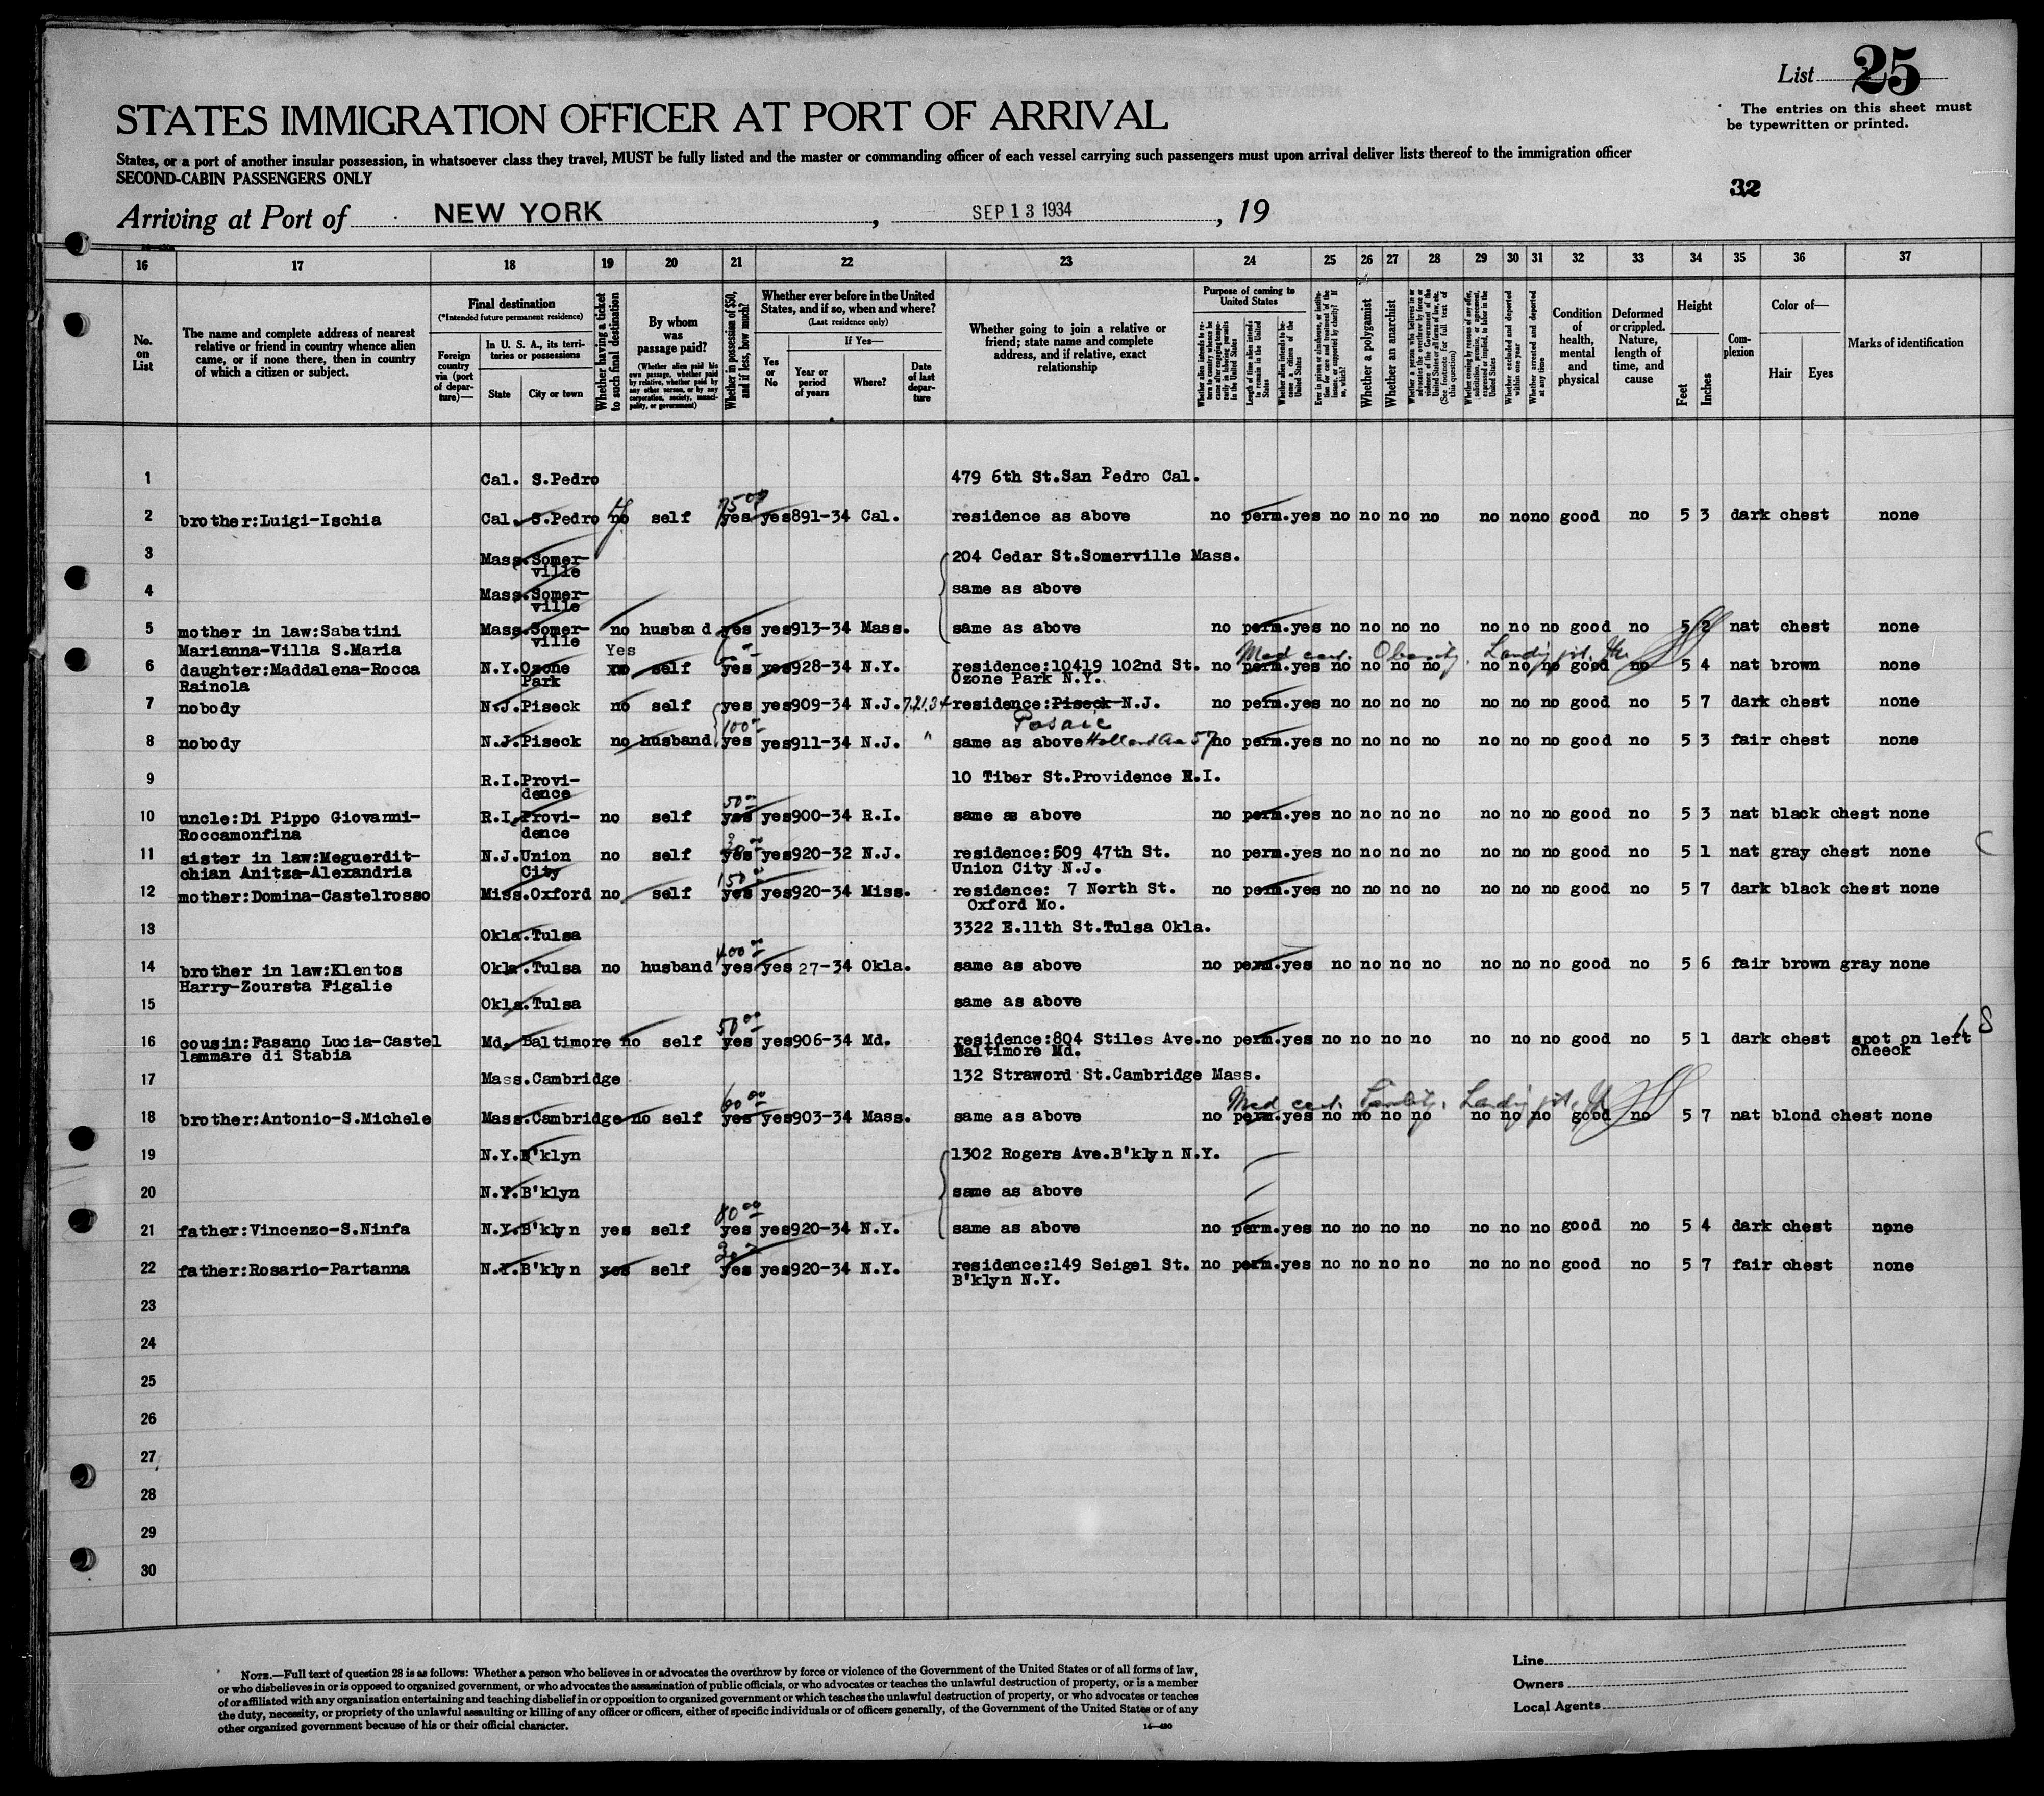 List 25
The entries on this sheet must
be typewritten or printed.
STATES IMMIGRATION OFFICER AT PORT OF ARRIVAL
States, or a port of another insular possession, in whatsoever class they travel, MUST be fully listed and the master or commanding officer of each vessel carrying such passengers must upon arrival deliver lists thereof to the immigration officer
SECOND-CABIN PASSENGERS ONLY
32
Arriving at Port of NEW YORK, SEP 13 1934, 19
16 17 18 19 20 21 22 23 24 25 26 27 28 29 30 31 32 33 34 35 36 37
No. on List
The name and complete address of nearest relative or friend in country whence alien came, or if none there, then in country of which a citizen or subject.
Final destination
(*Intended future permanent residence)
Foreign country via (port of departure)—
In U. S. A., its territories or possessions
State
City or town
Whether having a ticket to such final destination
By whom was passage paid?
(Whether alien paid his own passage, whether paid by relative, whether paid by any other person, or by any corporation, society, municipality, or government)
Whether in possession of $50, and if less, how much?
Whether ever before in the United States, and if so, when and where?
(Last residence only)
Yes or No
If Yes—
Year or period of years
Where?
Date of last departure
Whether going to join a relative or friend; state name and complete address, and if relative, exact relationship
Purpose of coming to United States
Length of time alien intends to remain in the United States
Whether alien intends to become a citizen of the United States
Whether a polygamist
Whether an anarchist
Whether excluded and deported within one year
Whether arrested and deported at any time
Condition of health, mental and physical
Deformed or crippled. Nature, length of time, and cause
Height
Feet
Inches
Complexion
Color of—
Hair
Eyes
Marks of identification
1 Cal. S.Pedro 479 6th St.San Pedro Cal.
75 00
2 brother:Luigi-Ischia Cal. S.Pedro no self yes yes 891-34 Cal. residence as above no perm. yes no no no no no no no good no 5 3 dark chest none
3 Mass. Somer-ville 204 Cedar St.Somerville Mass.
4 Mass. Somer-ville same as above
5 mother in law:Sabatini Mass. Somer-ville no husband yes yes 913-34 Mass. same as above no perm. yes no no no no no no no good no 5 2 nat chest none
Marianna-Villa S.Maria
Yes Med cert. Obesity. Landing
6 daughter:Maddalena-Rocca N.Y. Ozone Park no self yes yes 928-34 N.Y. residence:10419 102nd St. no perm. yes no no no no no no no good no 5 4 nat brown none
Rainola Ozone Park N.Y.
7 nobody N.J. Piseck no self yes yes 909-34 N.J. 7.21.34 residence:Piseck N.J. no perm. yes no no no no no no no good no 5 7 dark chest none
100 Pasaic
8 nobody N.J. Piseck no husband yes yes 911-34 N.J. " same as above Holland Ave 57 no perm. yes no no no no no no no good no 5 3 fair chest none
9 R.I. Provi-dence 10 Tiber St.Providence R.I.
50
10 uncle:Di Pippo Giovanni- R.I. Provi-dence no self yes yes 900-34 R.I. same as above no perm. yes no no no no no no no good no 5 3 nat black chest none
Roccamonfina
11 sister in law:Meguerdit- N.J. Union City no self yes yes 920-32 N.J. residence:509 47th St. no perm. yes no no no no no no no good no 5 1 nat gray chest none C
chian Anitza-Alexandria Union City N.J.
150
12 mother:Domina-Castelrosso Miss. Oxford no self yes yes 920-34 Miss. residence: 7 North St. no perm. yes no no no no no no no good no 5 7 dark black chest none
Oxford Mo.
13 Okla. Tulsa 3322 E.11th St.Tulsa Okla.
400 00
14 brother in law:Klentos Okla. Tulsa no husband yes yes 27-34 Okla. same as above no perm. yes no no no no no no no good no 5 6 fair brown gray none
Harry-Zoursta Figalie
15 Okla. Tulsa same as above
50 00
16 cousin:Fasano Lucia-Castel Md. Baltimore no self yes yes 906-34 Md. residence:804 Stiles Ave. no perm. yes no no no no no no no good no 5 1 dark chest spot on left S
lammare di Stabia Baltimore Md. cheeck
17 Mass. Cambridge 132 Straword St.Cambridge Mass.
60 00 Med cert. Landing
18 brother:Antonio-S.Michele Mass. Cambridge no self yes yes 903-34 Mass. same as above no perm. yes no no no no no no no good no 5 7 nat blond chest none
19 N.Y. B'klyn 1302 Rogers Ave.B'klyn N.Y.
20 N.Y. B'klyn same as above
80 00
21 father:Vincenzo-S.Ninfa N.Y. B'klyn yes self yes yes 920-34 N.Y. same as above no perm. yes no no no no no no no good no 5 4 dark chest none
22 father:Rosario-Partanna N.Y. B'klyn yes self yes yes 920-34 N.Y. residence:149 Seigel St. no perm. yes no no no no no no no good no 5 7 fair chest none
B'klyn N.Y.
23
24
25
26
27
28
29
30
NOTE.—Full text of question 28 is as follows: Whether a person who believes in or advocates the overthrow by force or violence of the Government of the United States or of all forms of law,
or who disbelieves in or is opposed to organized government, or who advocates the assassination of public officials, or who advocates or teaches the unlawful destruction of property, or is a member
of or affiliated with any organization entertaining and teaching disbelief in or opposition to organized government or which teaches the unlawful destruction of property, or who advocates or teaches
the duty, necessity, or propriety of the unlawful assaulting or killing of any officer or officers, either of specific individuals or of officers generally, of the Government of the United States or of any
other organized government because of his or their official character.
14—430
Line
Owners
Local Agents